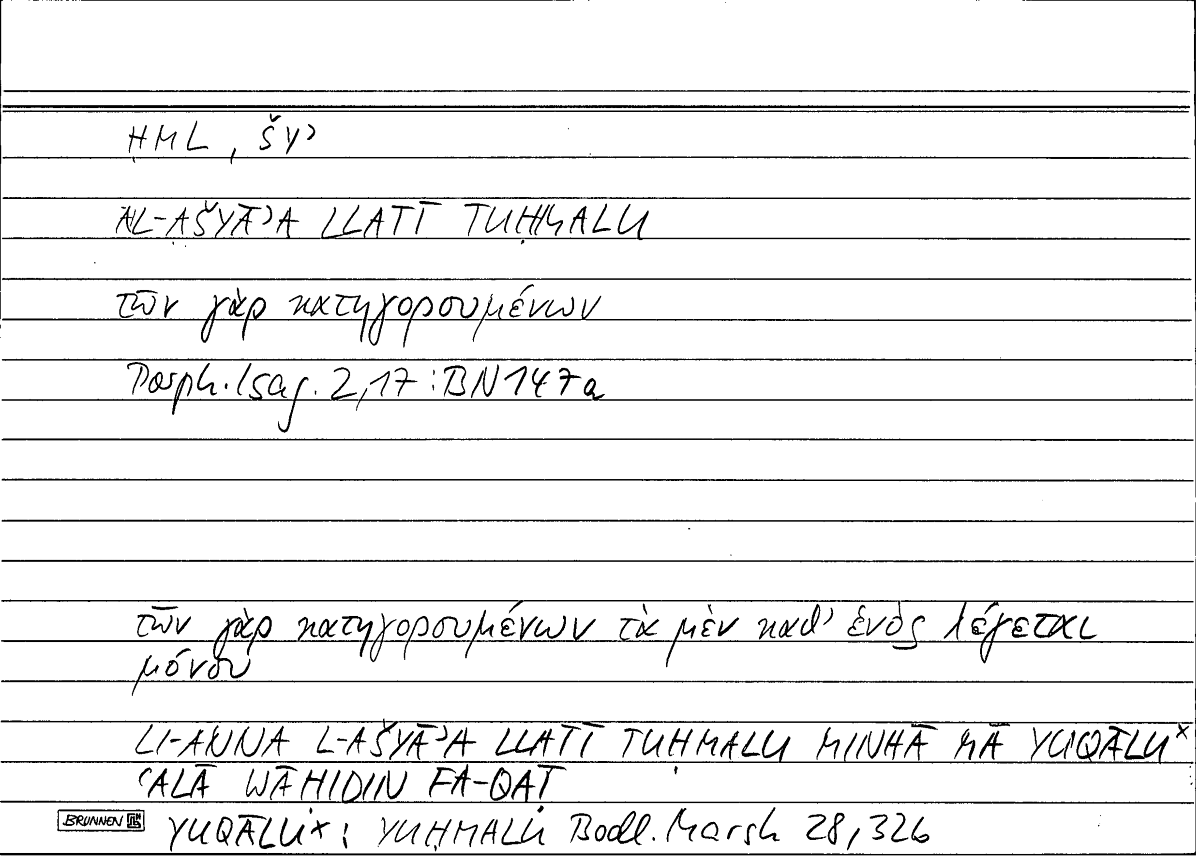 ḤML, ŠYʾ
AL-AŠYĀʾA LLATĪ TUḤMALU
τῶν γὰρ κατηγορουμένων
Porph. Isag. 2,17 : BN 147a
τῶν γὰρ κατηγορουμένων τὰ μὲν καθ' ἑνὸς λέγεται
μόνου
LI-ANNA L-AŠYĀʾA LLATĪ TUḤMALU MINHĀ MĀ YUQĀLU×
ʿALĀ WĀḤIDIN FA-QAṬ
BRUNNEN YUQĀLU× : YUḤMALU Bodl. Marsh 28,326